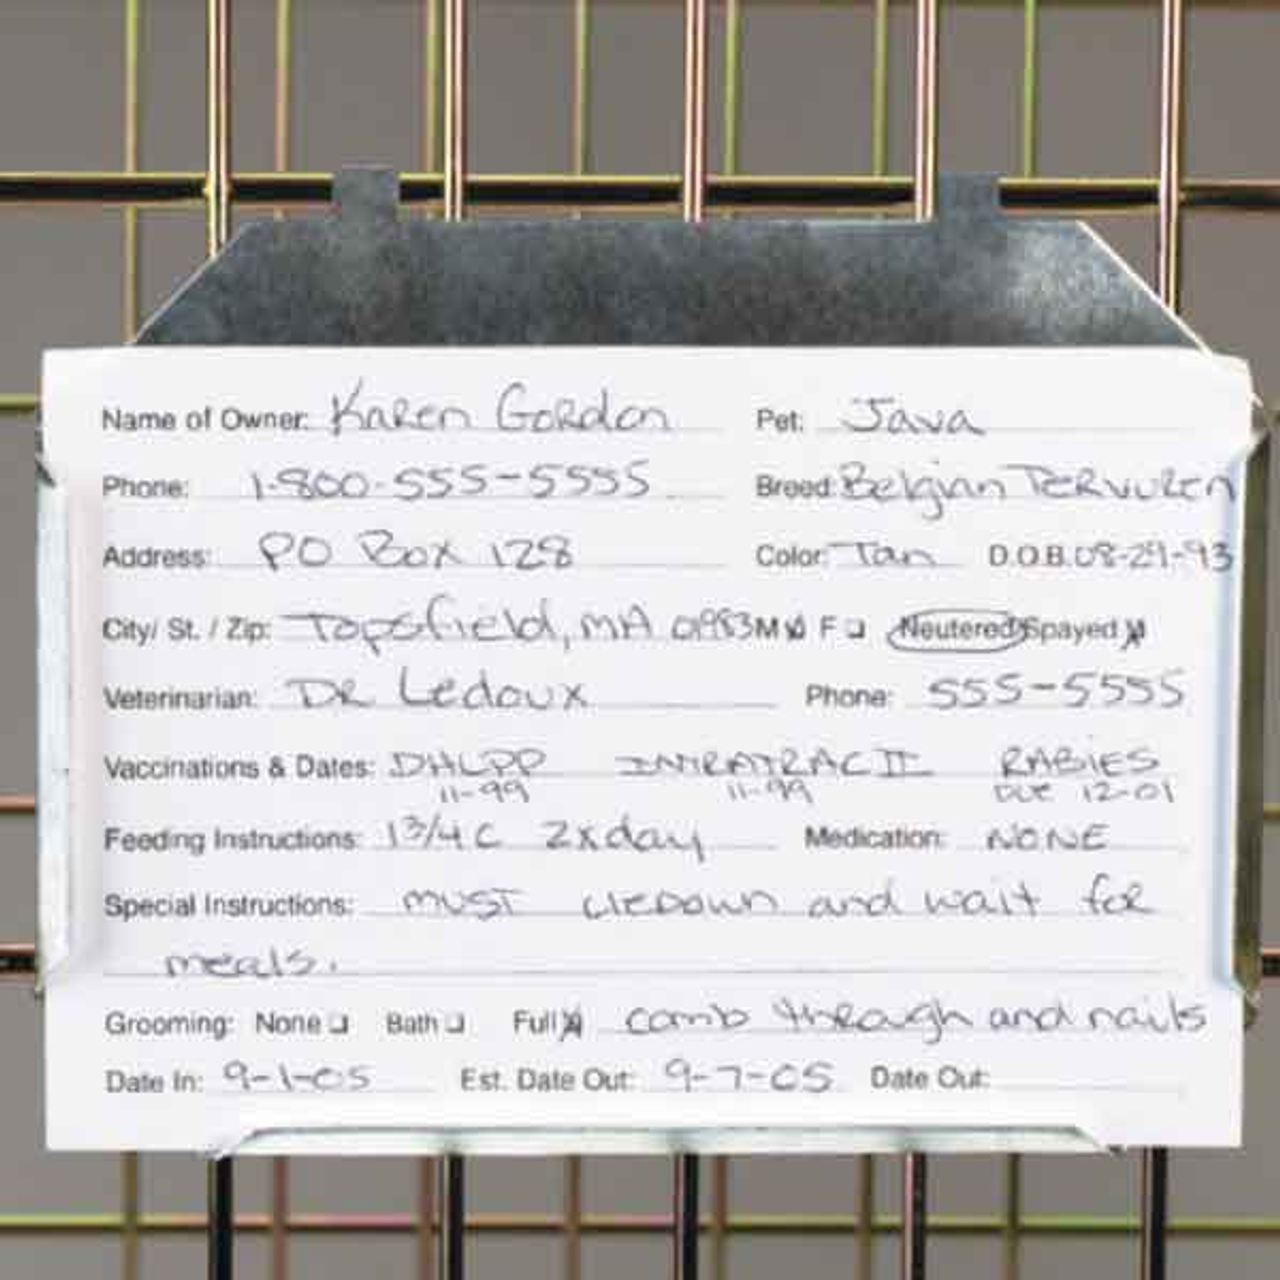 Name of Owner: Karen Gordon Pet: Java
Phone: 1-800-555-5555 Breed: Belgian Tervuren
Address: PO Box 128 Color: Tan D.O.B. 08-29-93
City/ St. / Zip: Topsfield, MA 01983 M F Neutered/Spayed
Veterinarian: DR Ledoux Phone: 555-5555
Vaccinations & Dates: DHLPP INTRATRAC II RABIES
11-99 11-99 DUE 12-01
Feeding Instructions: 1 3/4 C 2x day Medication: NONE
Special Instructions: MUST lie down and wait for
meals.
Grooming: None Bath Full comb through and nails
Date In: 9-1-05 Est. Date Out: 9-7-05 Date Out: